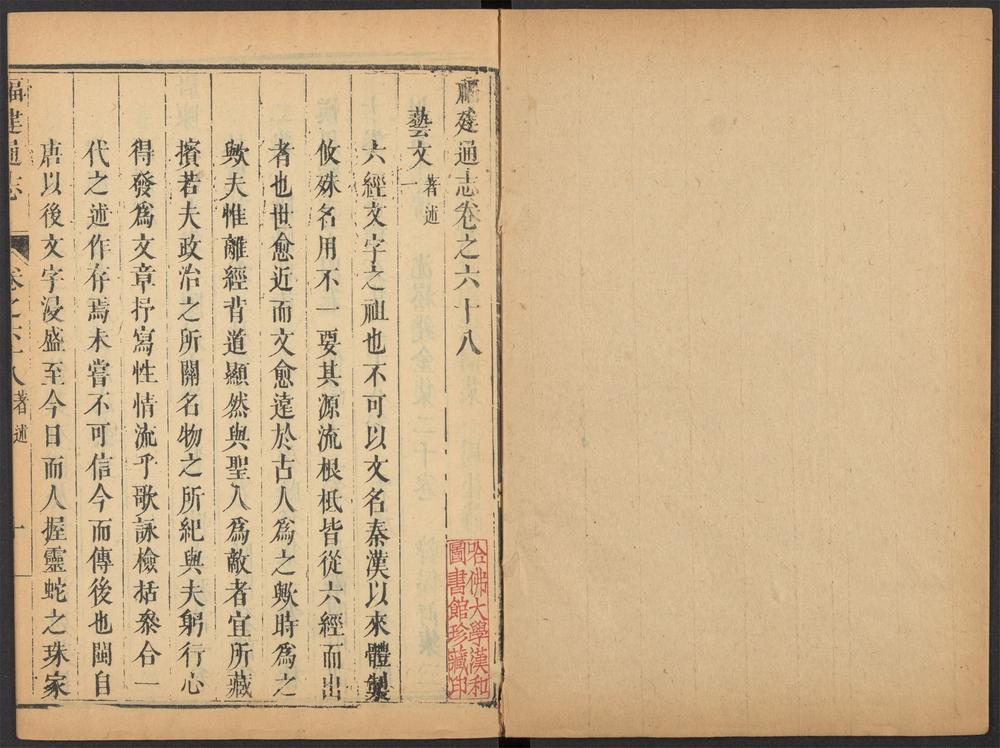 福建通志卷之六十八
藝文一 著述
六經文字之祖也不可以文名秦漢以來體製
攸殊名用不一要其源流根柢皆從六經而出
者也世愈近而文愈遠於古人為之歟時為之
歟夫惟離經背道顯然與聖人為敵者宜所藏
擯若夫政治之所關名物之所紀與夫躬行心
得發為文章抒寫性情流乎歌詠檢括衆合一
代之述作存焉未嘗不可信今而傳後也閩自
唐以後文字浸盛至今日而人握靈蛇之珠家
福建通志 卷之六十八 著述 一
哈佛大學漢和
圖書館珍藏印